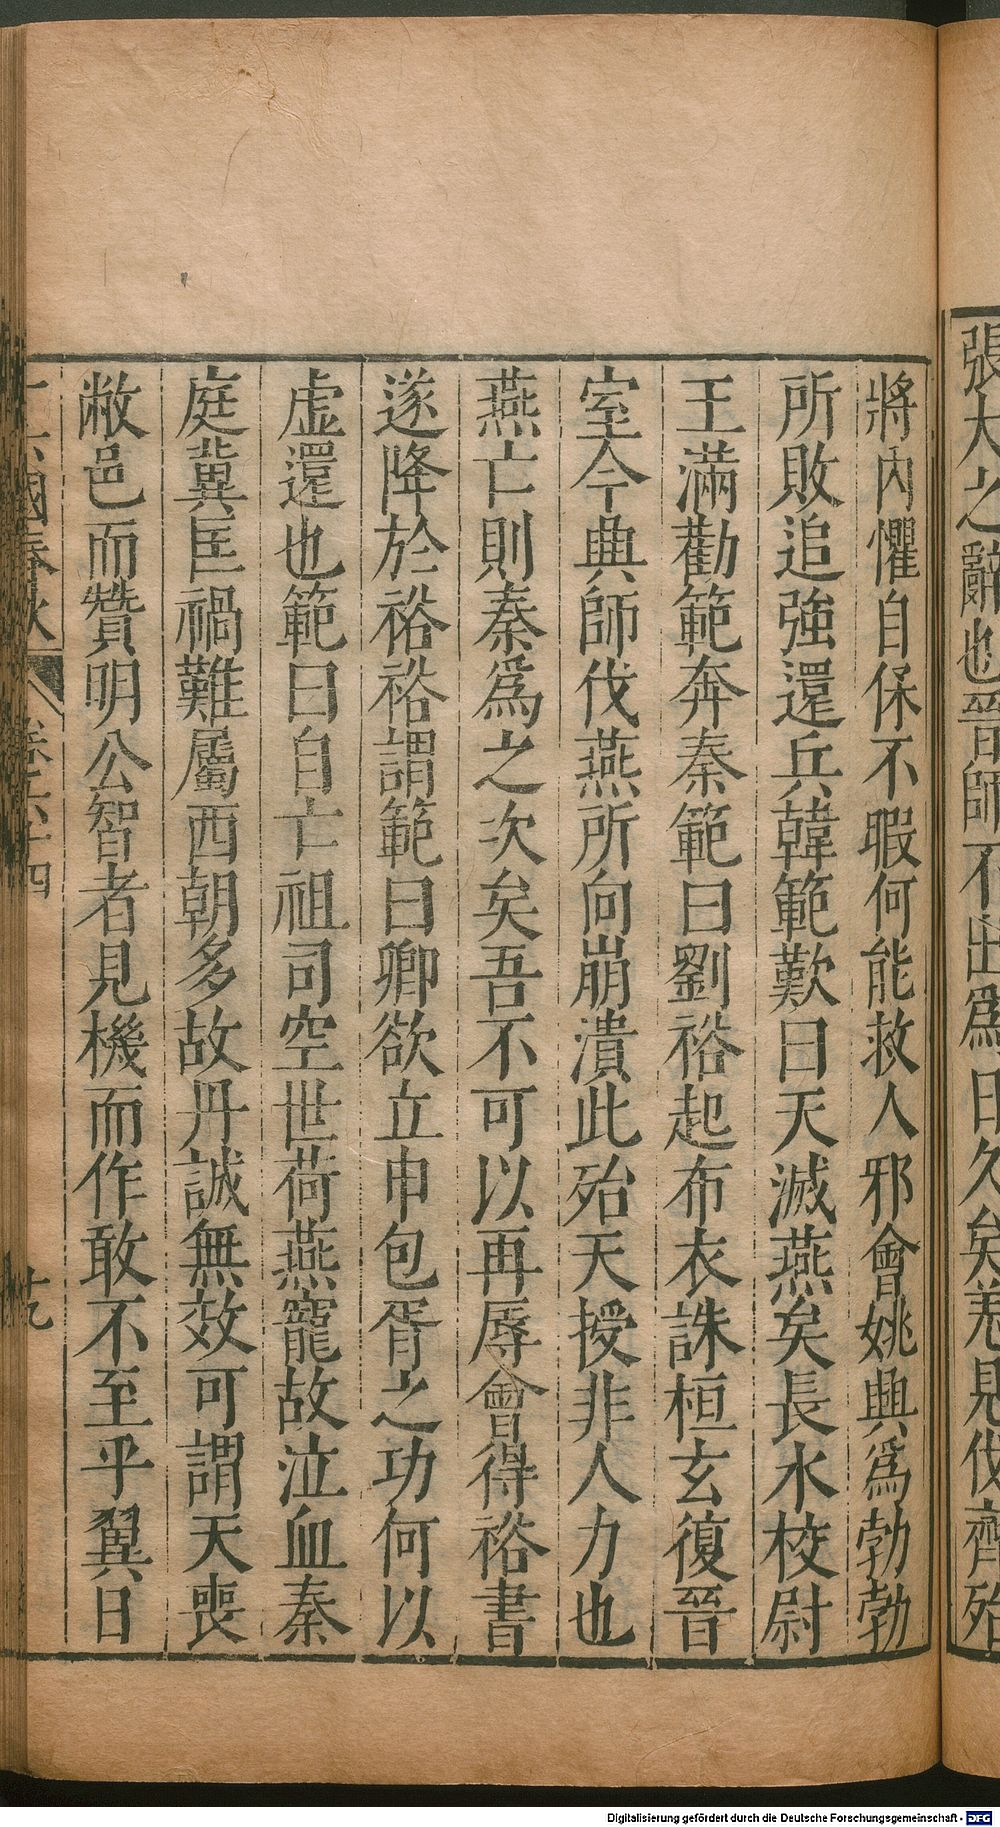 張大之辭也晉師不出爲日久矣羌見伐齊殆
將內懼自保不暇何能救人邪會姚興爲勃勃
所敗追強還兵韓範歎曰天滅燕矣長水校尉
王滿勸範奔秦範曰劉裕起布衣誅桓玄復晉
室今興師伐燕所向崩潰此殆天授非人力也
燕亡則秦爲之次矣吾不可以再辱會得裕書
遂降於裕裕謂範曰卿欲立申包胥之功何以
虛還也範曰自亡祖司空世荷燕寵故泣血秦
庭冀匡禍難屬西朝多故丹誠無效可謂天喪
敝邑而贊明公智者見機而作敢不至乎翼日
十六國春秋 卷六十四 廿九
Digitalisierung gefördert durch die Deutsche Forschungsgemeinschaft - DFG